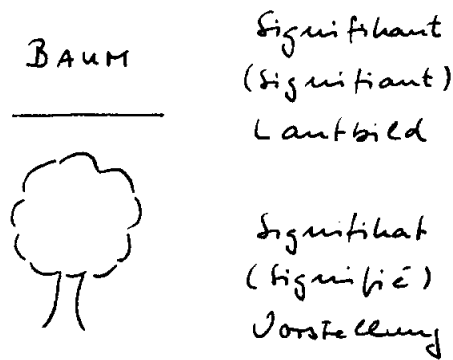 BAUM
Signifikant
(Signifiant)
Lautbild
Signifikat
(Signifié)
Vorstellung